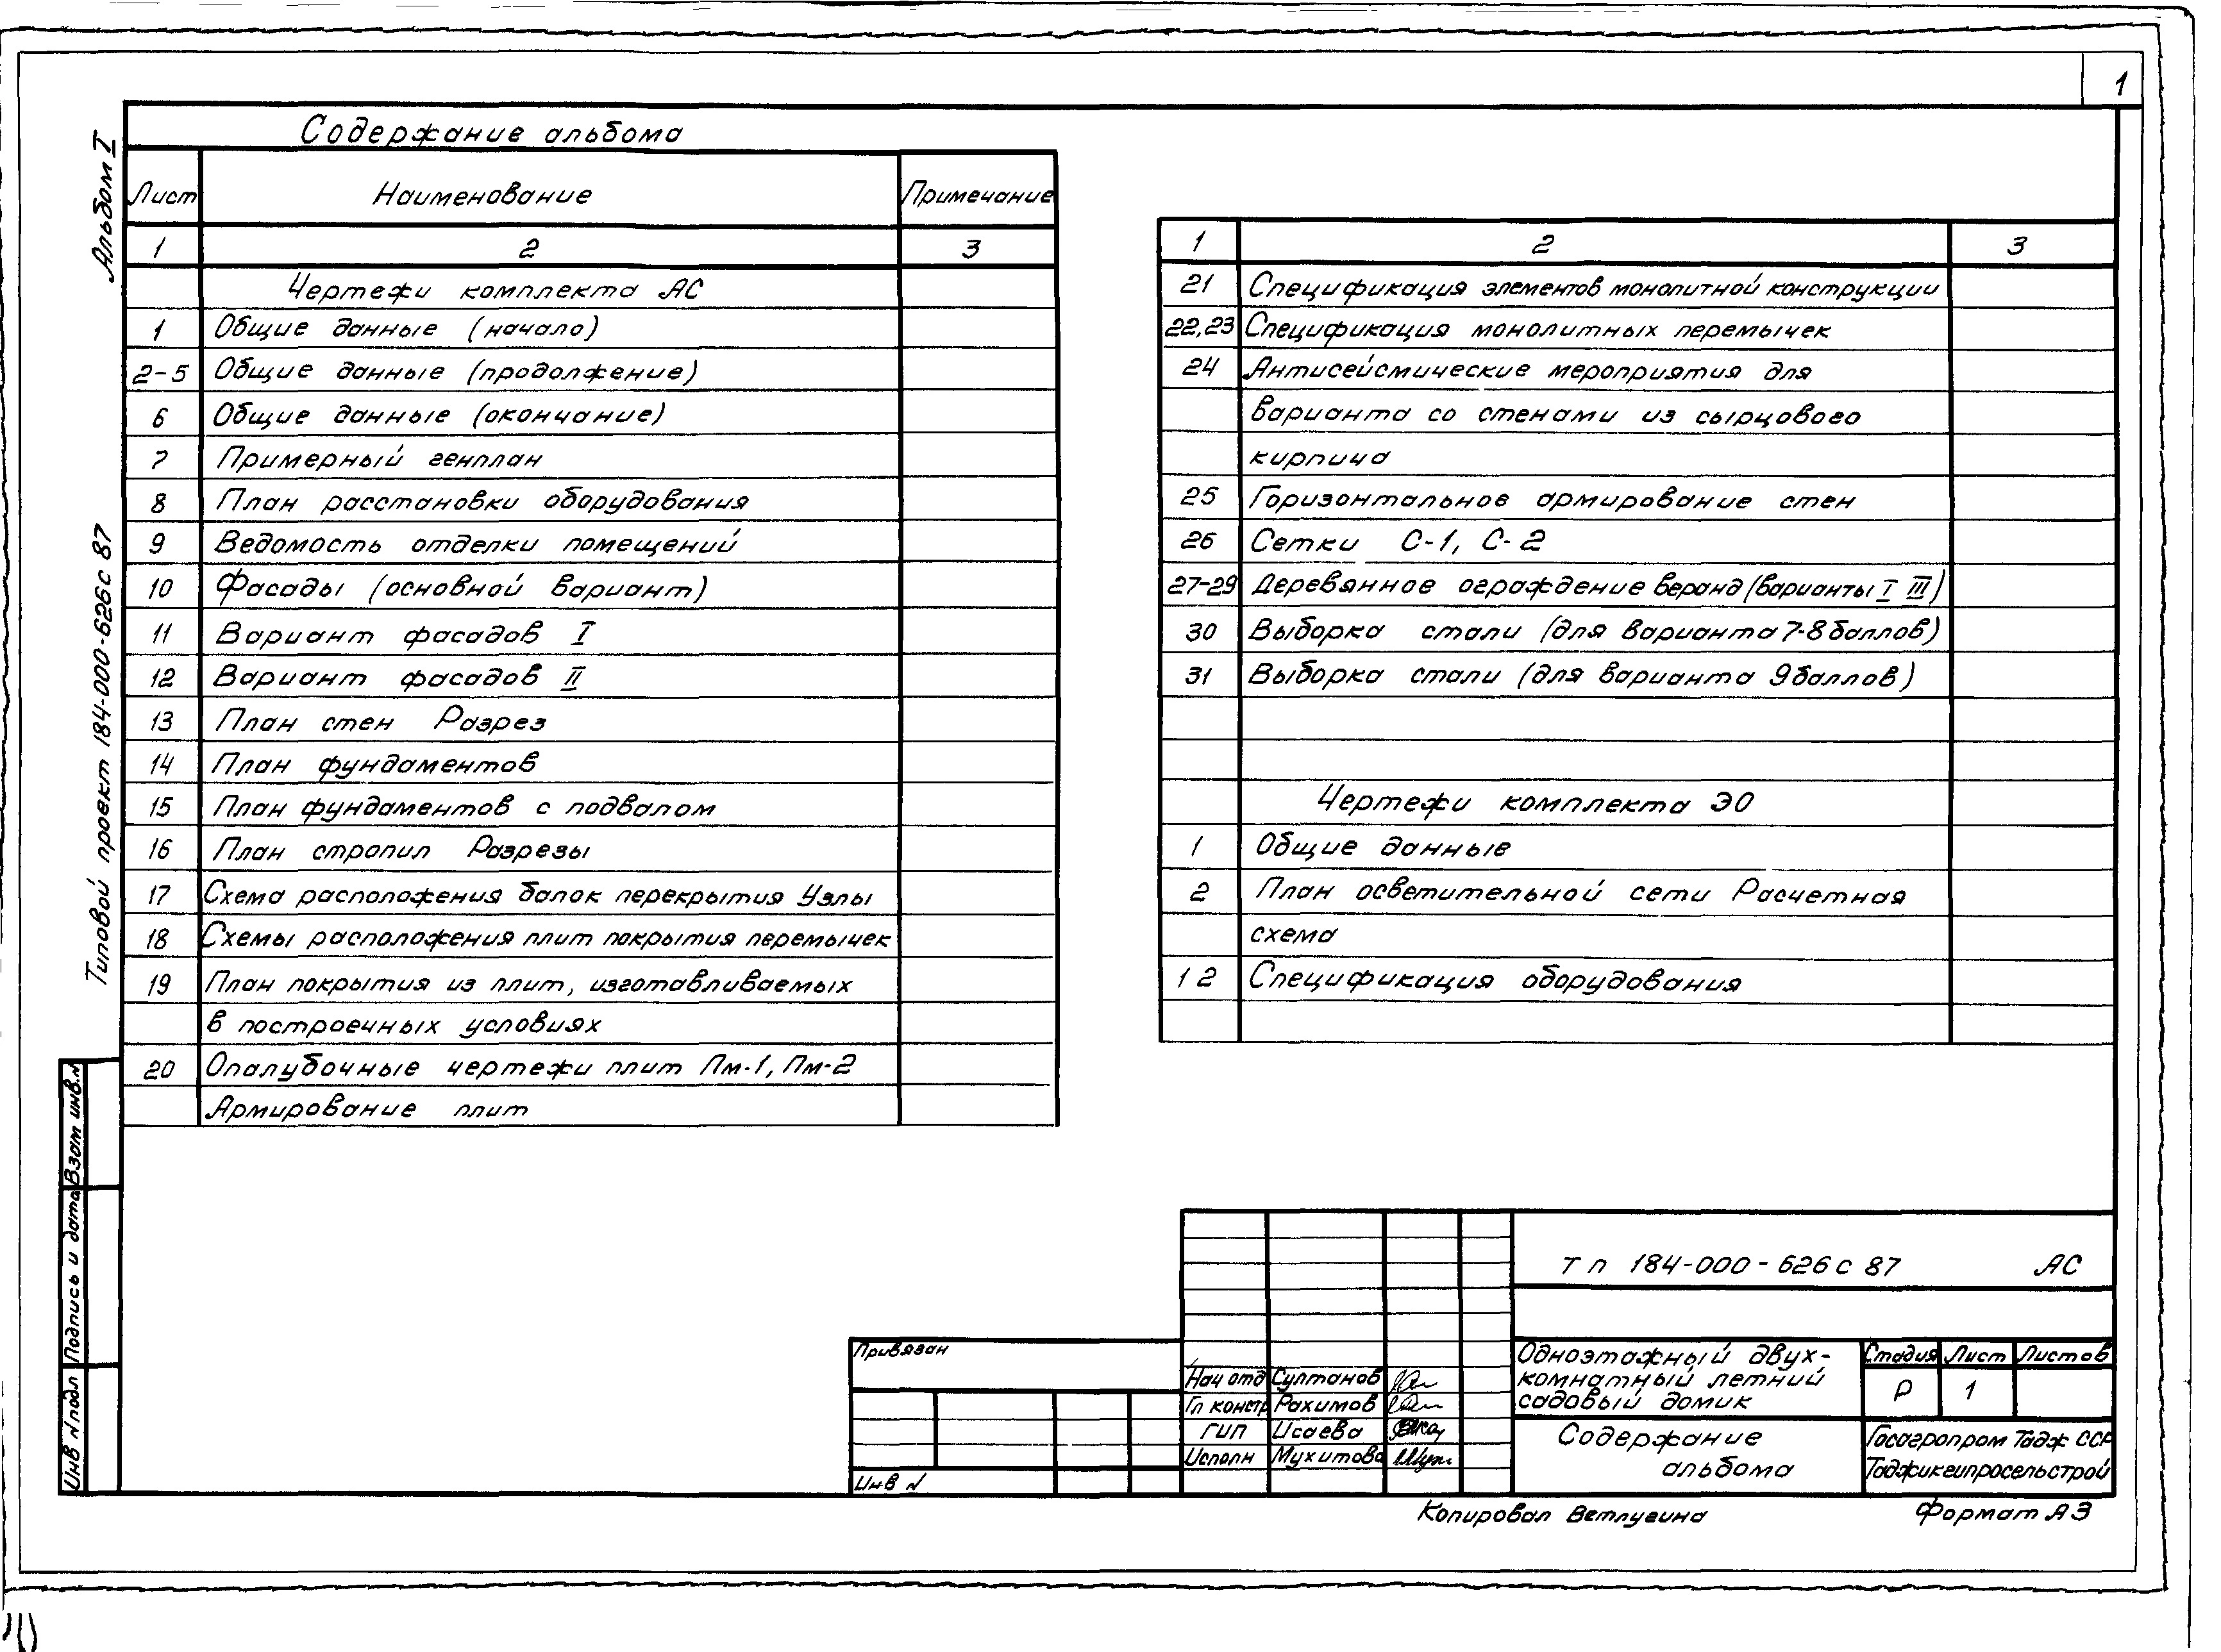 1
Альбом I
Типовой проект 184-000-626с 87
Содержание альбома
Лист Наименование Примечание
1 2 3
Чертежи комплекта АС
1 Общие данные (начало)
2-5 Общие данные (продолжение)
6 Общие данные (окончание)
7 Примерный генплан
8 План расстановки оборудования
9 Ведомость отделки помещений
10 Фасады (основной вариант)
11 Вариант фасадов I
12 Вариант фасадов II
13 План стен Разрез
14 План фундаментов
15 План фундаментов с подвалом
16 План стропил Разрезы
17 Схема расположения балок перекрытия Узлы
18 Схемы расположения плит покрытия перемычек
19 План покрытия из плит, изготавливаемых
в построечных условиях
20 Опалубочные чертежи плит Пм-1, Пм-2
Армирование плит
1 2 3
21 Спецификация элементов монолитной конструкции
22,23 Спецификация монолитных перемычек
24 Антисейсмические мероприятия для
варианта со стенами из сырцового
кирпича
25 Горизонтальное армирование стен
26 Сетки С-1, С-2
27-29 Деревянное ограждение веранд (варианты I III)
30 Выборка стали (для варианта 7-8 баллов)
31 Выборка стали (для варианта 9 баллов)
Чертежи комплекта ЭО
1 Общие данные
2 План осветительной сети Расчетная
схема
1 2 Спецификация оборудования
Взам инв.N
Подпись и дата
Инв N подл
Привязан
Инв N
Нач отд Султанов
Гл констр Рахимов
ГИП Исаева
Исполн Мухитова
т п 184-000-626с 87 АС
Одноэтажный двух-
комнатный летний
садовый домик
Стадия Лист Листов
Р 1
Содержание
альбома
Госагропром Тадж ССР
Таджикгипросельстрой
Копировал Ветлугина Формат А3